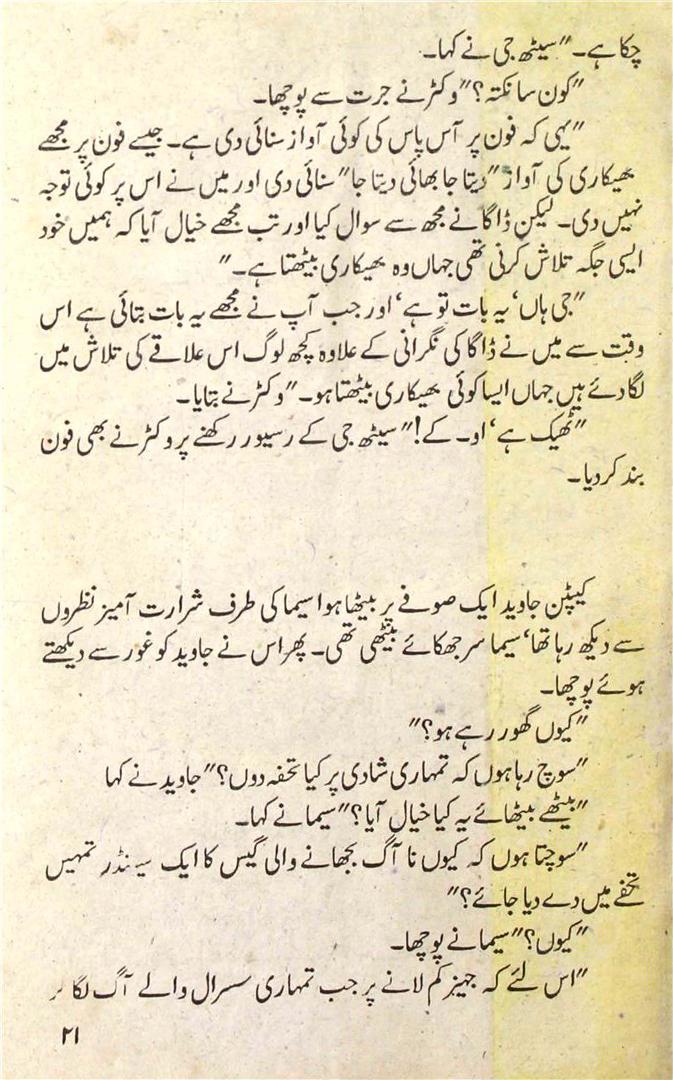 چکا ہے۔" سیٹھ جی نے کہا۔
"کون سا نکتہ؟" وکٹر نے حرت سے پوچھا۔
"یہی کہ فون پر آس پاس کی کوئی آواز سنائی دی ہے۔ جیسے فون پر مجھے
بھیکاری کی آواز "دیتا جا بھائی دیتا جا" سنائی دی اور میں نے اس پر کوئی توجہ
نہیں دی۔ لیکن ڈاگا نے مجھ سے سوال کیا اور تب مجھے خیال آیا کہ ہمیں خود
ایسی جگہ تلاش کرنی تھی جہاں وہ بھیکاری بیٹھتا ہے۔"
"جی ہاں، یہ بات تو ہے، اور جب آپ نے مجھے یہ بات بتائی ہے اس
وقت سے میں نے ڈاگا کی نگرانی کے علاوہ کچھ لوگ اس علاقے کی تلاش میں
لگا دئے ہیں جہاں ایسا کوئی بھیکاری بیٹھتا ہو۔" وکٹر نے بتایا۔
"ٹھیک ہے، او۔ کے!" سیٹھ جی کے رسیور رکھنے پر وکٹر نے بھی فون
بند کر دیا۔
کیپٹن جاوید ایک صوفے پر بیٹھا ہوا سیما کی طرف شرارت آمیز نظروں
سے دیکھ رہا تھا، سیما سر جھکائے بیٹھی تھی۔ پھر اس نے جاوید کو غور سے دیکھتے
ہوئے پوچھا۔
"کیوں گھور رہے ہو؟"
"سوچ رہا ہوں کہ تمہاری شادی پر کیا تحفہ دوں؟" جاوید نے کہا
"بیٹھے بیٹھائے یہ کیا خیال آیا؟" سیما نے کہا۔
"سوچتا ہوں کہ کیوں نا آگ بجھانے والی گیس کا ایک سیلنڈر تمہیں
تحفے میں دے دیا جائے؟"
"کیوں؟" سیما نے پوچھا۔
"اس لئے کہ جہیز کم لانے پر جب تمہاری سسرال والے آگ لگا
۲۱